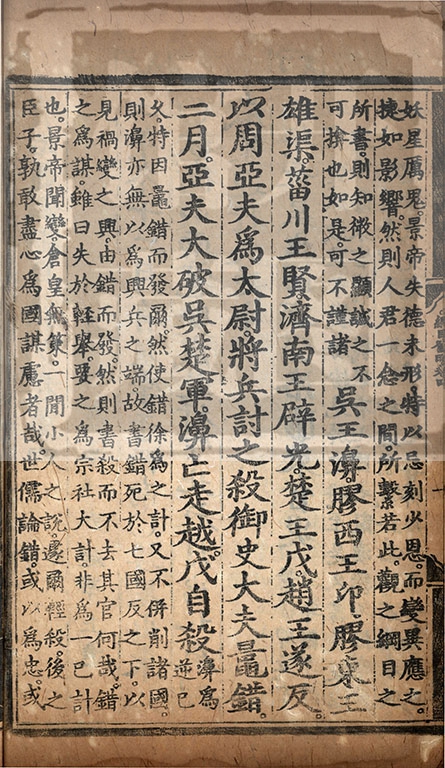 妖星厲鬼景帝失德未形特以忌刻少恩而變異應之
捷如影響然則人君一念之間所繫若此觀之綱目之
所書則知微之顯誠之不
可揜也如是可不謹諸
吳王濞膠西王卬膠東王
雄渠菑川王賢濟南王辟光楚王戊趙王遂反
以周亞夫爲太尉將兵討之殺御史大夫鼂錯
二月亞夫大破吳楚軍濞亡走越戊自殺
濞爲
逆已
久特因鼂錯而發爾然使錯徐爲之計又不併削諸國
則濞亦無以爲興兵之端故書錯死於七國反之下以
見禍變之興由錯而發然則書殺而不去其官何哉錯
之爲謀雖曰失於輕舉要之爲宗社大計非爲一已計
也景帝聞變倉皇無策一聞小人之說遽爾輕殺後之
臣子孰敢盡心爲國謀慮者哉世儒論錯或以爲忠或